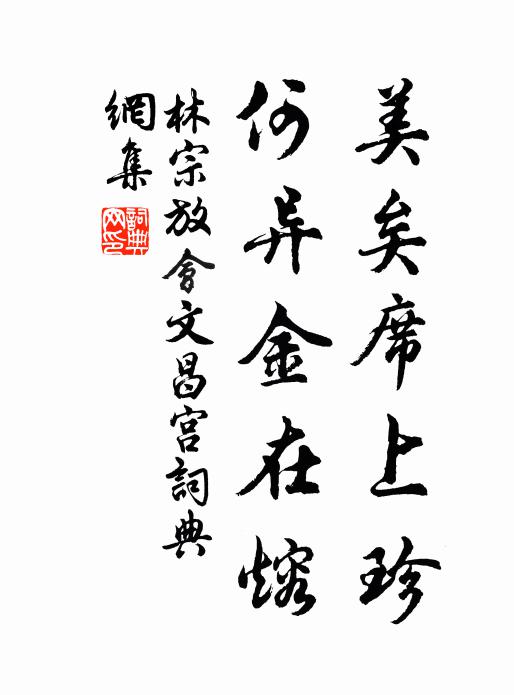 美矣席上珍
何异金在熔
林宗放會文昌宫詞典
網集
詞典网印